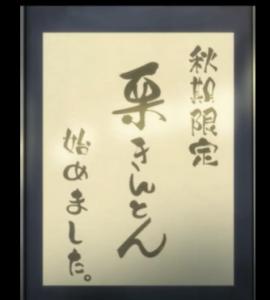 秋期限定
栗きんとん
始めました。